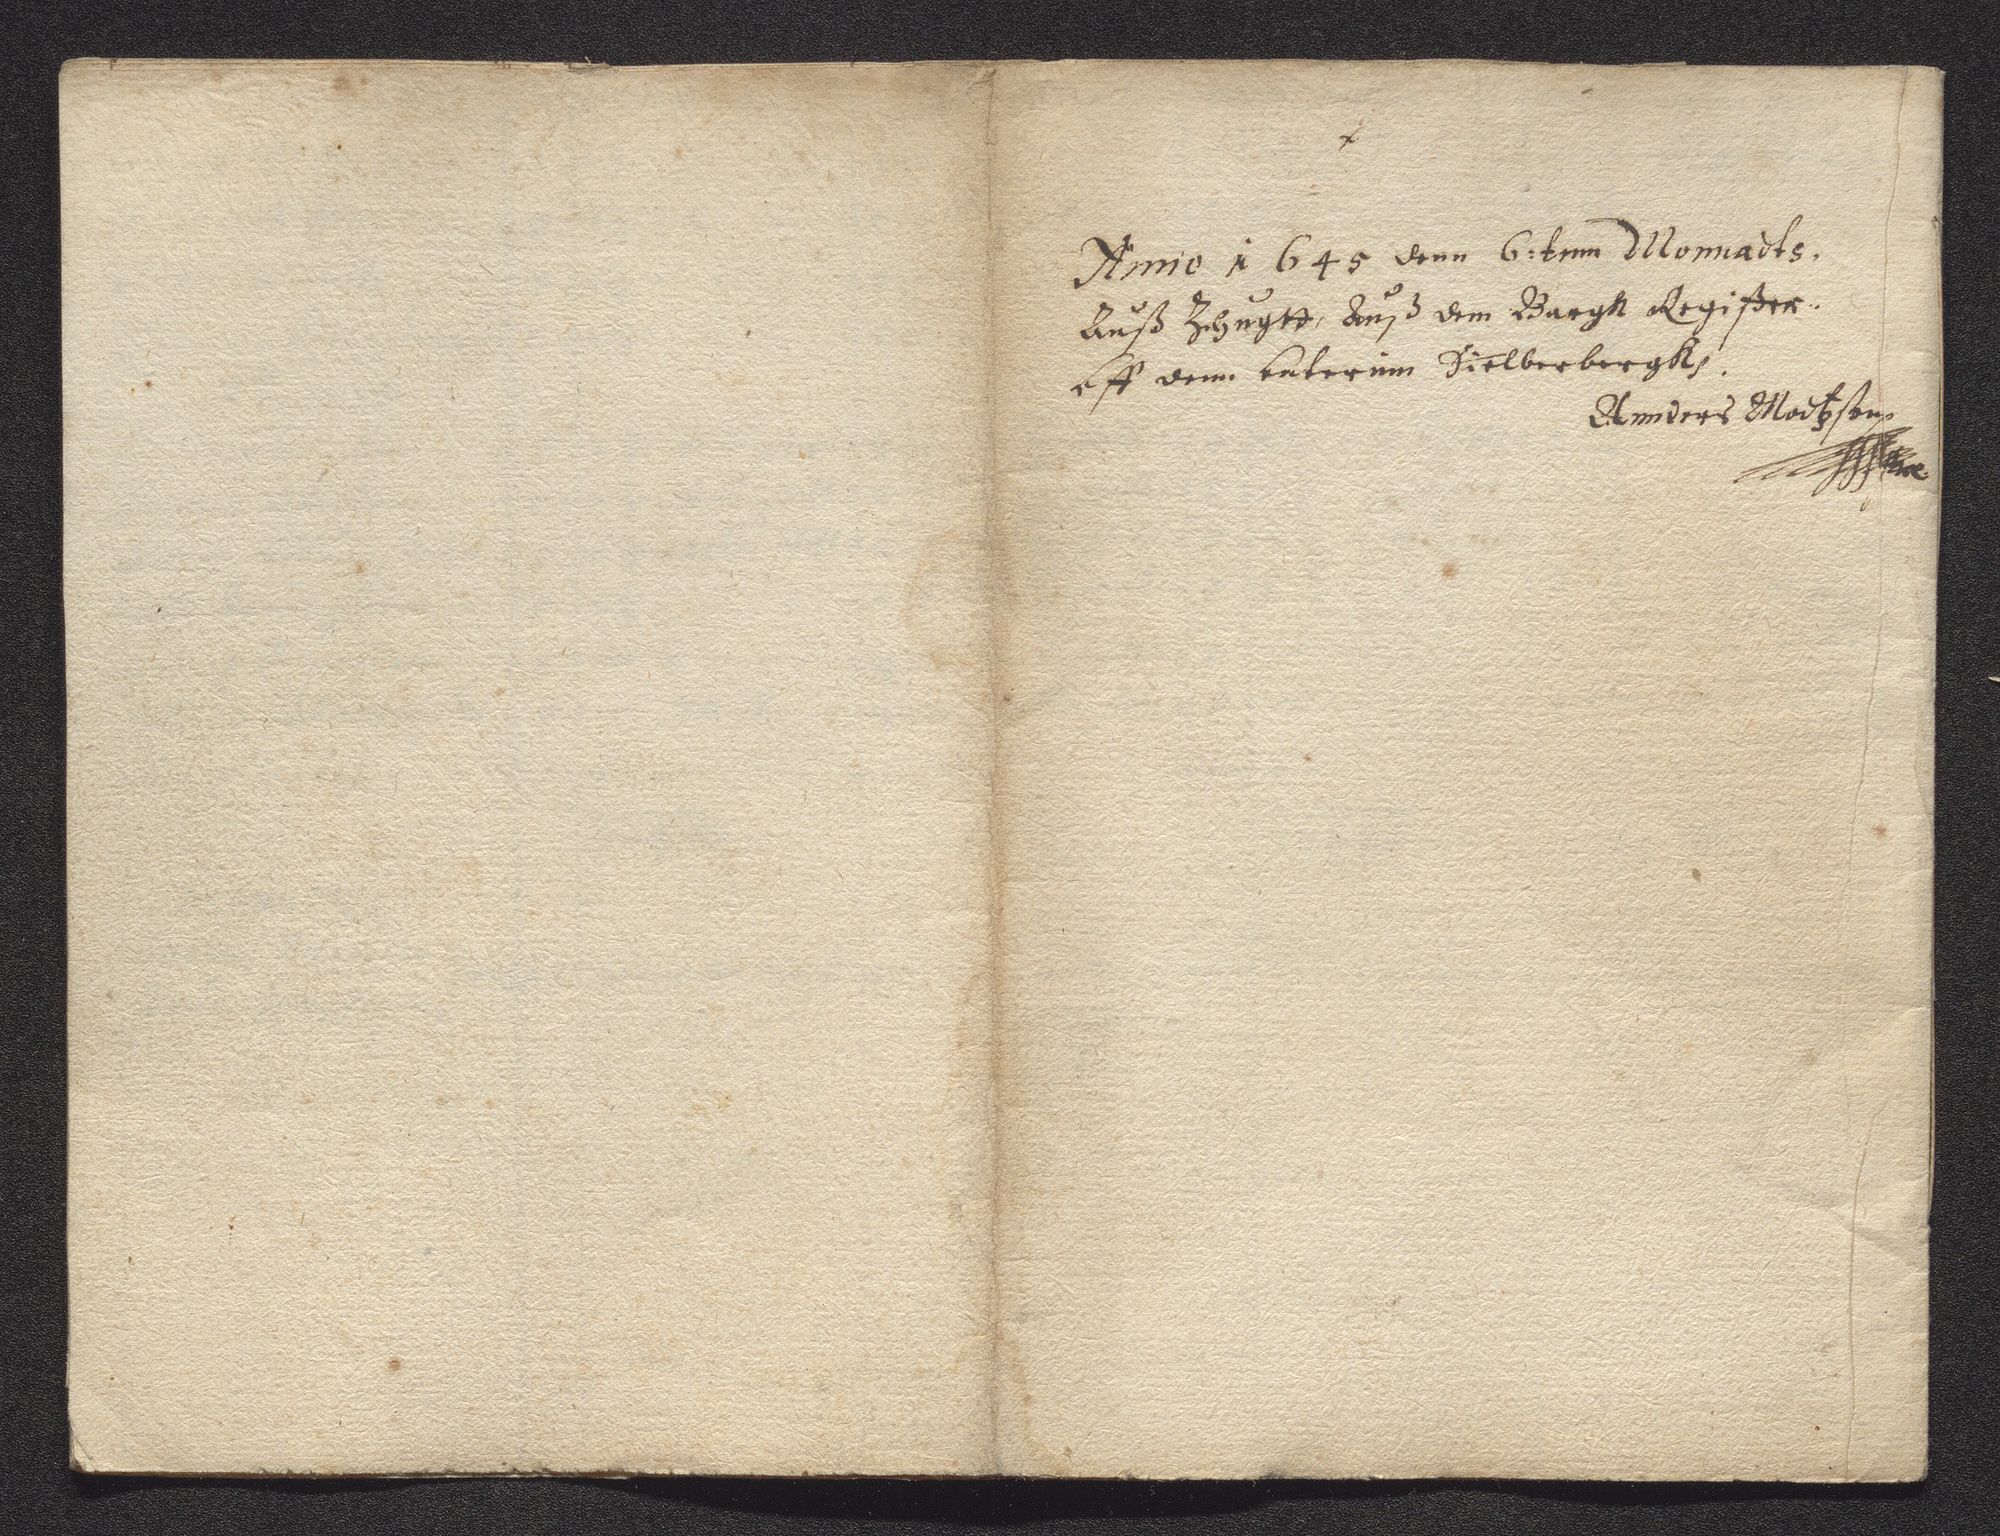 Anno 1645 denn 6:tenn Monnadts.
Auß Zchugtt, Auß dem Bargk Register.
eff denn Sielberbergk.
Annders Madtzsen